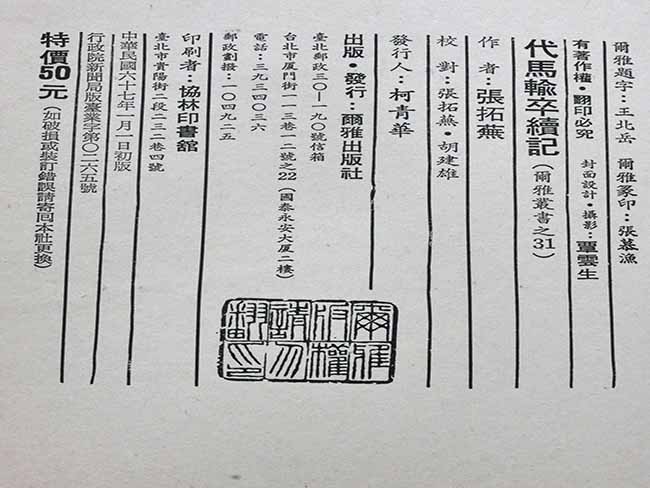 爾雅題字：王北岳　爾雅篆印：張慕漁
有著作權•翻印必究　封面設計•攝影：覃雲生
代馬輸卒續記（爾雅叢書之31）
作者：張拓蕪
校對：張拓蕪•胡建雄
發行人：柯青華
出版•發行：爾雅出版社
臺北郵政三○—一九○號信箱
台北市厦門街一一三巷一二號之22（國泰永安大厦二樓）
電話：三九三四○三六
郵政劃撥：一○四九二五
爾雅
版權
請勿
翻印
印刷者：協林印書舘
臺北市貴陽街二段二三二巷四號
中華民國六十七年一月一日初版
行政院新聞局版臺業字第○二六五號
特價50元（如破損或裝訂錯誤請寄回本社更換）